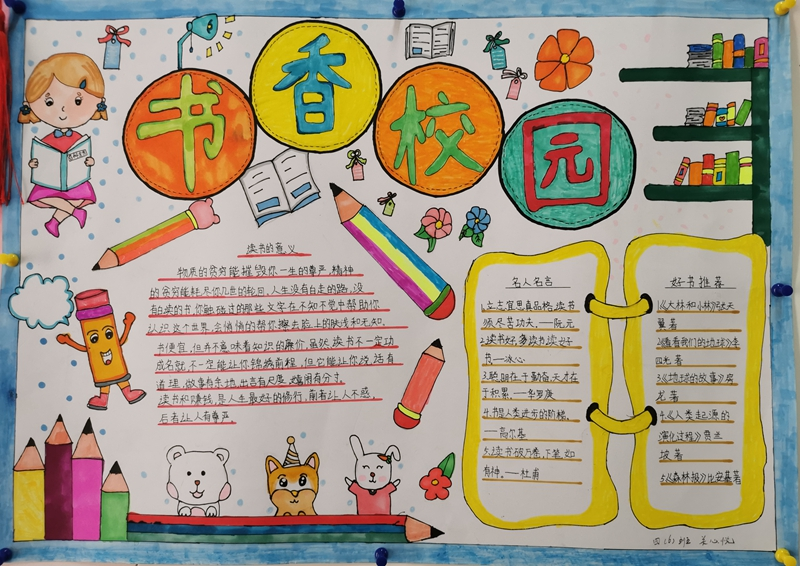 书香校园
读书的意义
物质的贫穷能摧毁你一生的尊严,精神
的贫穷能耗尽你几世的轮回,人生没有白走的路,没
有白读的书,你触碰过的那些文字在不知不觉中帮助你
认识这个世界,会悄悄的帮你擦去脸上的肤浅和无知。
书便宜,但并不意味着知识的廉价,虽然读书不一定功
成名就,不一定能让你锦绣前程,但它能让你说话有
道理,做事有余地,出言有尺度,嬉闹有分寸。
读书和赚钱,是人生最好的修行,前者让人不惑,
后者让人有尊严
名人名言
1.立志宜思真品格,读书
须尽苦功夫。——阮元
2.读书好,多读书,读好
书——冰心
3.聪明在于勤奋,天才在
于积累。——华罗庚
4.书是人类进步的阶梯。
——高尔基
5.读书破万卷,下笔如
有神。——杜甫
好书推荐
1《大林和小林》张天
翼著
2《看看我们的地球》李
四光著
3《地球的故事》房
龙著
4.《人类起源的
演化过程》贾兰
坡著
5《森林报》比安基著
四(6)班